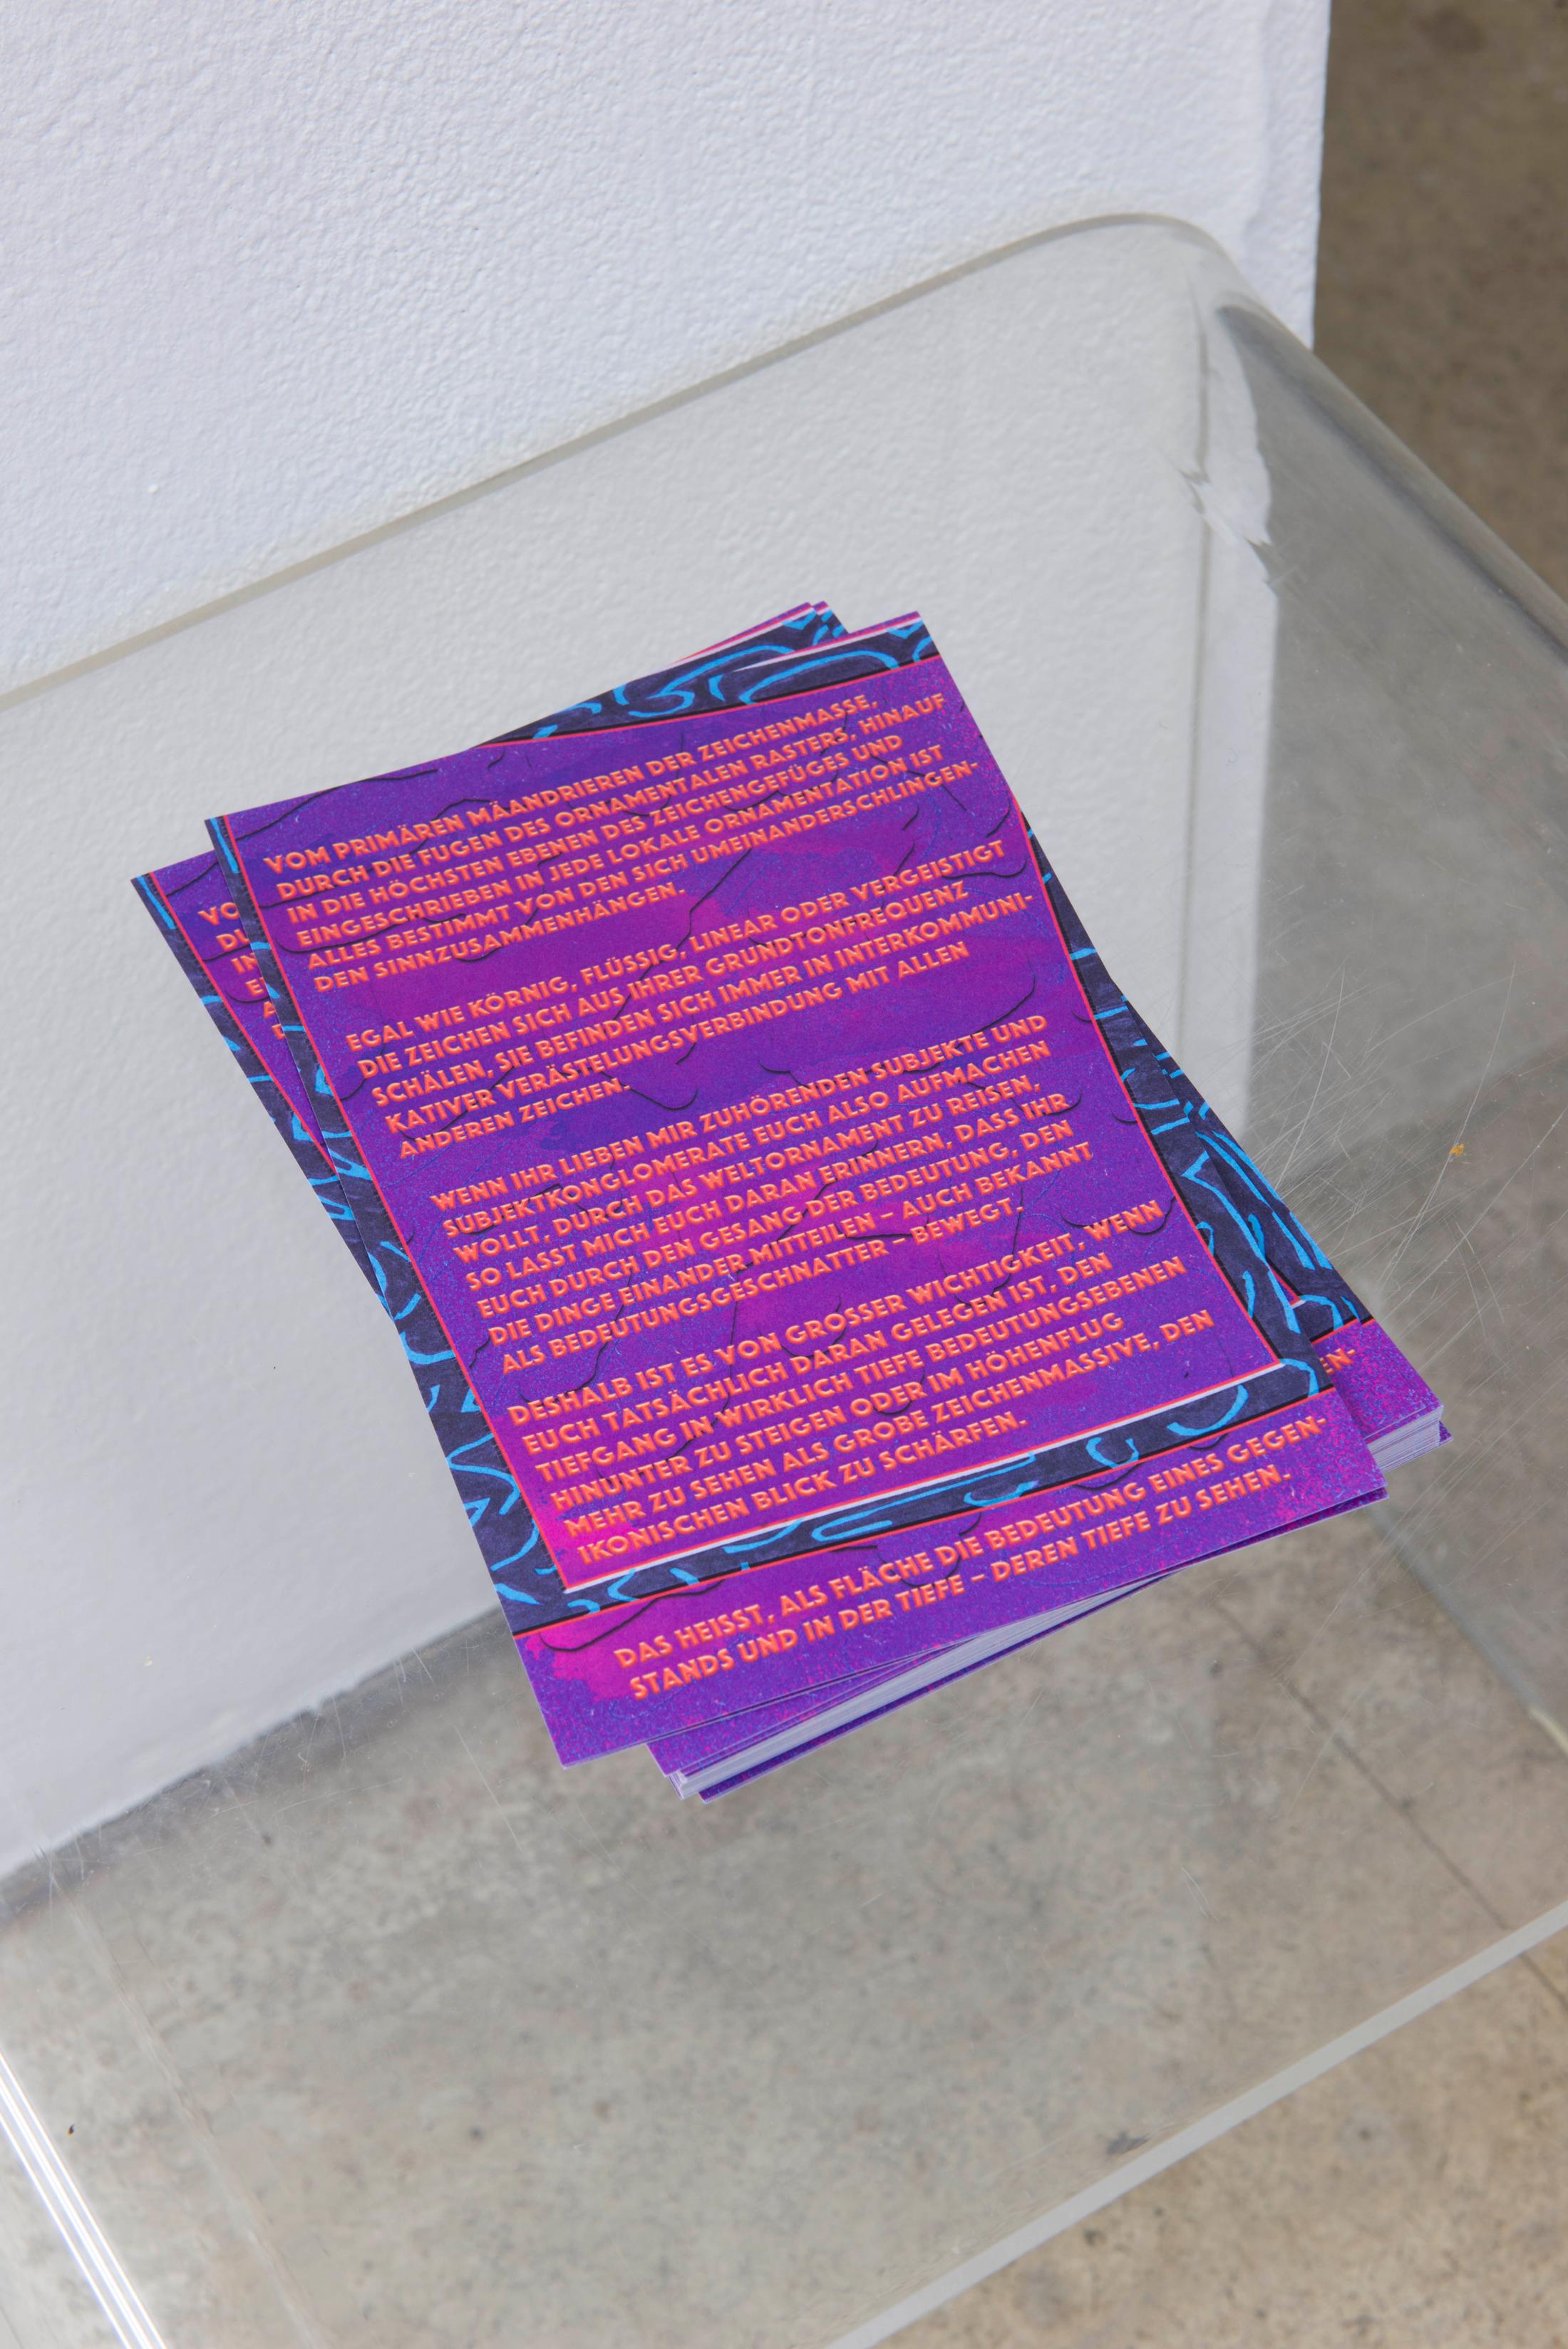 VOM PRIMÄREN MÄANDRIEREN DER ZEICHENMASSE,
DURCH DIE FUGEN DES ORNAMENTALEN RASTERS, HINAUF
IN DIE HÖCHSTEN EBENEN DES ZEICHENGEFÜGES UND
EINGESCHRIEBEN IN JEDE LOKALE ORNAMENTATION IST
ALLES BESTIMMT VON DEN SICH UMEINANDERSCHLINGEN-
DEN SINNZUSAMMENHÄNGEN.
EGAL WIE KÖRNIG, FLÜSSIG, LINEAR ODER VERGEISTIGT
DIE ZEICHEN SICH AUS IHRER GRUNDTONFREQUENZ
SCHÄLEN, SIE BEFINDEN SICH IMMER IN INTERKOMMUNI-
KATIVER VERÄSTELUNGSVERBINDUNG MIT ALLEN
ANDEREN ZEICHEN.
WENN IHR LIEBEN MIR ZUHÖRENDEN SUBJEKTE UND
SUBJEKTKONGLOMERATE EUCH ALSO AUFMACHEN
WOLLT, DURCH DAS WELTORNAMENT ZU REISEN,
SO LASST MICH EUCH DARAN ERINNERN, DASS IHR
EUCH DURCH DEN GESANG DER BEDEUTUNG, DEN
DIE DINGE EINANDER MITTEILEN – AUCH BEKANNT
ALS BEDEUTUNGSGESCHNATTER – BEWEGT.
DESHALB IST ES VON GROSSER WICHTIGKEIT, WENN
EUCH TATSÄCHLICH DARAN GELEGEN IST, DEN
TIEFGANG IN WIRKLICH TIEFE BEDEUTUNGSEBENEN
HINUNTER ZU STEIGEN ODER IM HÖHENFLUG
MEHR ZU SEHEN ALS GROBE ZEICHENMASSIVE, DEN
IKONISCHEN BLICK ZU SCHÄRFEN.
DAS HEISST, ALS FLÄCHE DIE BEDEUTUNG EINES GEGEN-
STANDS UND IN DER TIEFE – DEREN TIEFE ZU SEHEN.